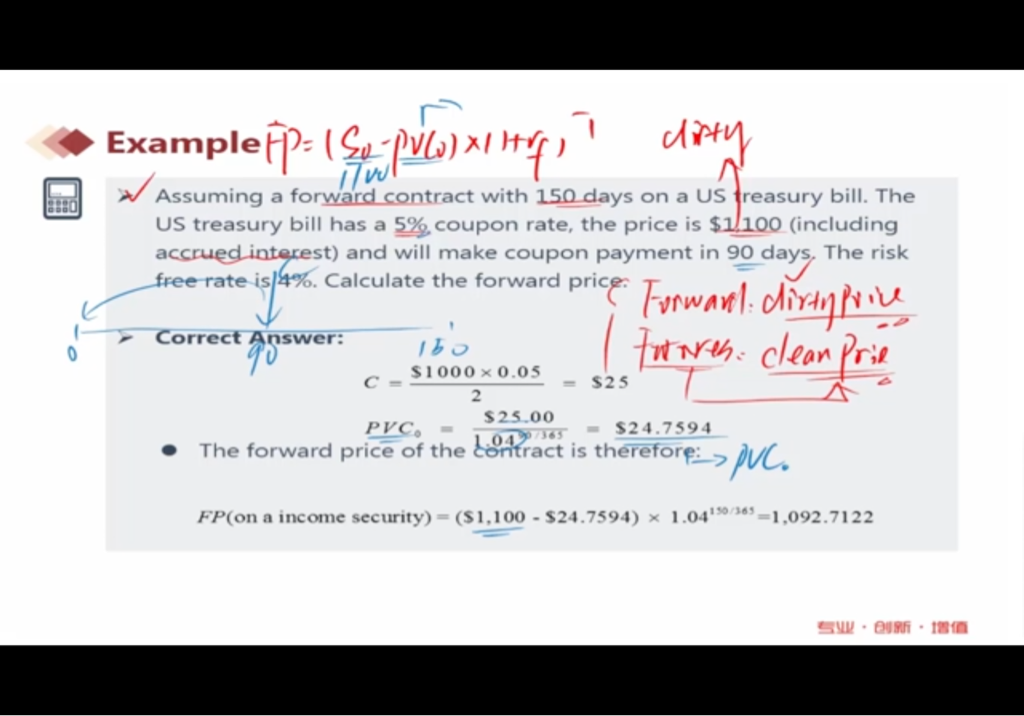 Example FP = (S₀ - PVC₀) × (1+rf)ᵀ dirty
1100
Assuming a forward contract with 150 days on a US treasury bill. The
US treasury bill has a 5% coupon rate, the price is $1,100 (including
accrued interest) and will make coupon payment in 90 days. The risk
free rate is 4%. Calculate the forward price.
Forward: dirty price
Correct Answer:
0 90 150
Futures: clean price
C = $1000 × 0.05 / 2 = $25
PVC₀ = $25.00 / 1.04^90/365 = $24.7594
The forward price of the contract is therefore: → PVC₀
FP(on a income security) = ($1,100 - $24.7594) × 1.04^150/365 =1,092.7122
专业 · 创新 · 增值